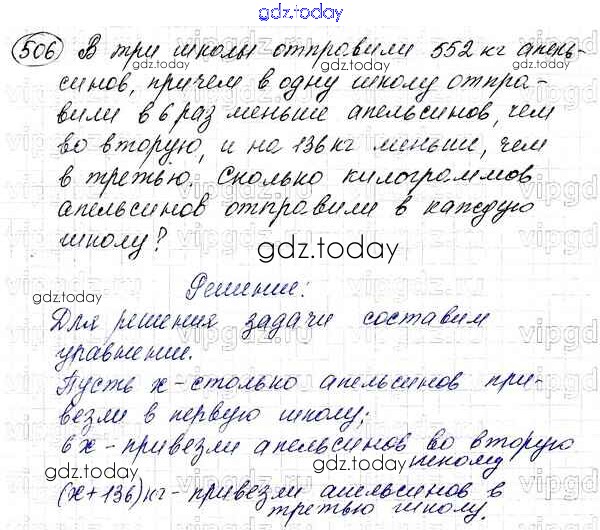 gdz.today
506 В три школы отправили 552 кг апель-
gdz.today gdz.today
синов, причем в одну школу отпра-
вили в 6 раз меньше апельсинов, чем
gdz.today gdz.today
во вторую, и на 136 кг меньше, чем
в третью. Сколько килограммов
gdz.today
апельсинов отправили в каждую
школу?
gdz.today
Решение:
gdz.today
Для решения задачи составим
уравнение.
Пусть х - столько апельсинов при-
везли в первую школу;
6х - привезли апельсинов во вторую
школу
gdz.today gdz.today
(х + 136) кг - привезли апельсинов в
третью школу.